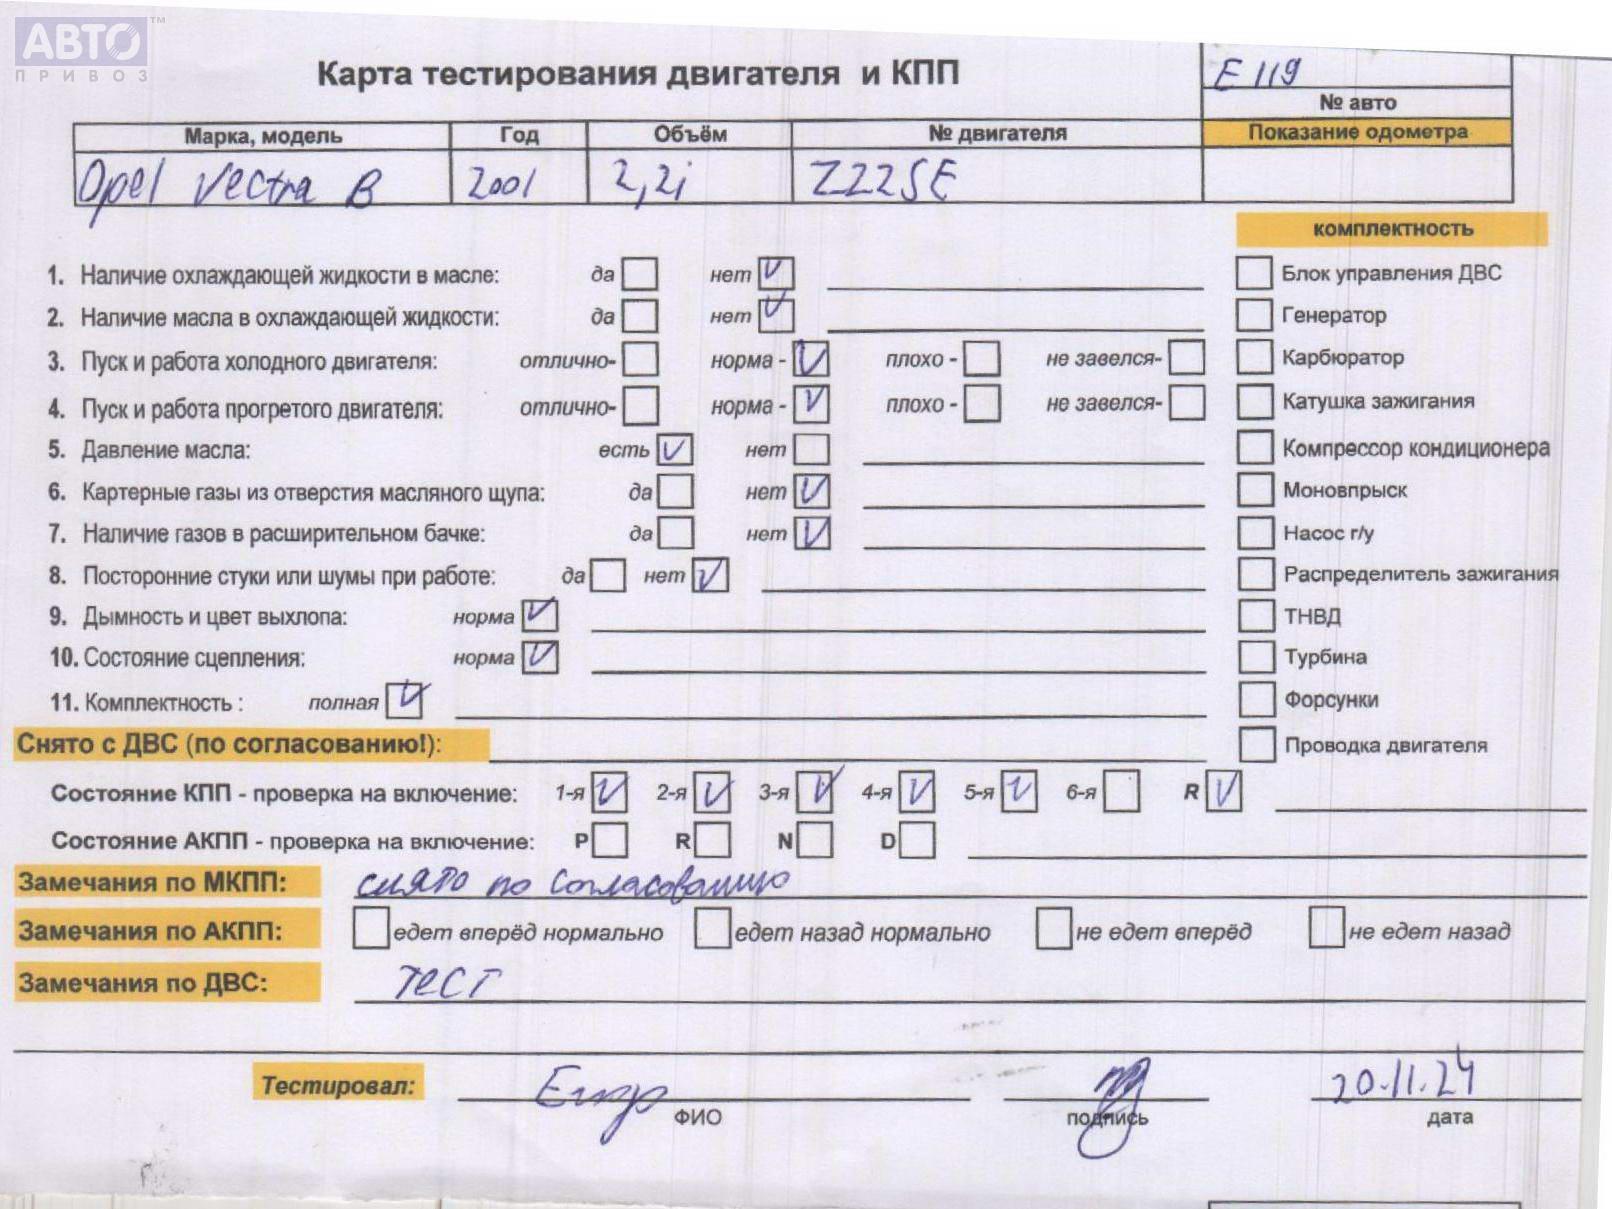 АВТО™
ПРИВОЗ
Карта тестирования двигателя и КПП
E 119
№ авто
Марка, модель Год Объём № двигателя Показание одометра
Opel Vectra B 2001 2,2i Z22SE
комплектность
1. Наличие охлаждающей жидкости в масле: да нет V Блок управления ДВС
2. Наличие масла в охлаждающей жидкости: да нет V Генератор
3. Пуск и работа холодного двигателя: отлично- норма - V плохо - не завелся- Карбюратор
4. Пуск и работа прогретого двигателя: отлично- норма - V плохо - не завелся- Катушка зажигания
5. Давление масла: есть V нет Компрессор кондиционера
6. Картерные газы из отверстия масляного щупа: да нет V Моновпрыск
7. Наличие газов в расширительном бачке: да нет V Насос г/у
8. Посторонние стуки или шумы при работе: да нет V Распределитель зажигания
9. Дымность и цвет выхлопа: норма V ТНВД
10. Состояние сцепления: норма V Турбина
11. Комплектность : полная V Форсунки
Снято с ДВС (по согласованию!): Проводка двигателя
Состояние КПП - проверка на включение: 1-я V 2-я V 3-я V 4-я V 5-я V 6-я R V
Состояние АКПП - проверка на включение: P R N D
Замечания по МКПП: снято по согласованию
Замечания по АКПП: едет вперёд нормально едет назад нормально не едет вперёд не едет назад
Замечания по ДВС: тест
Тестировал: Егор 20.11.24
ФИО подпись дата